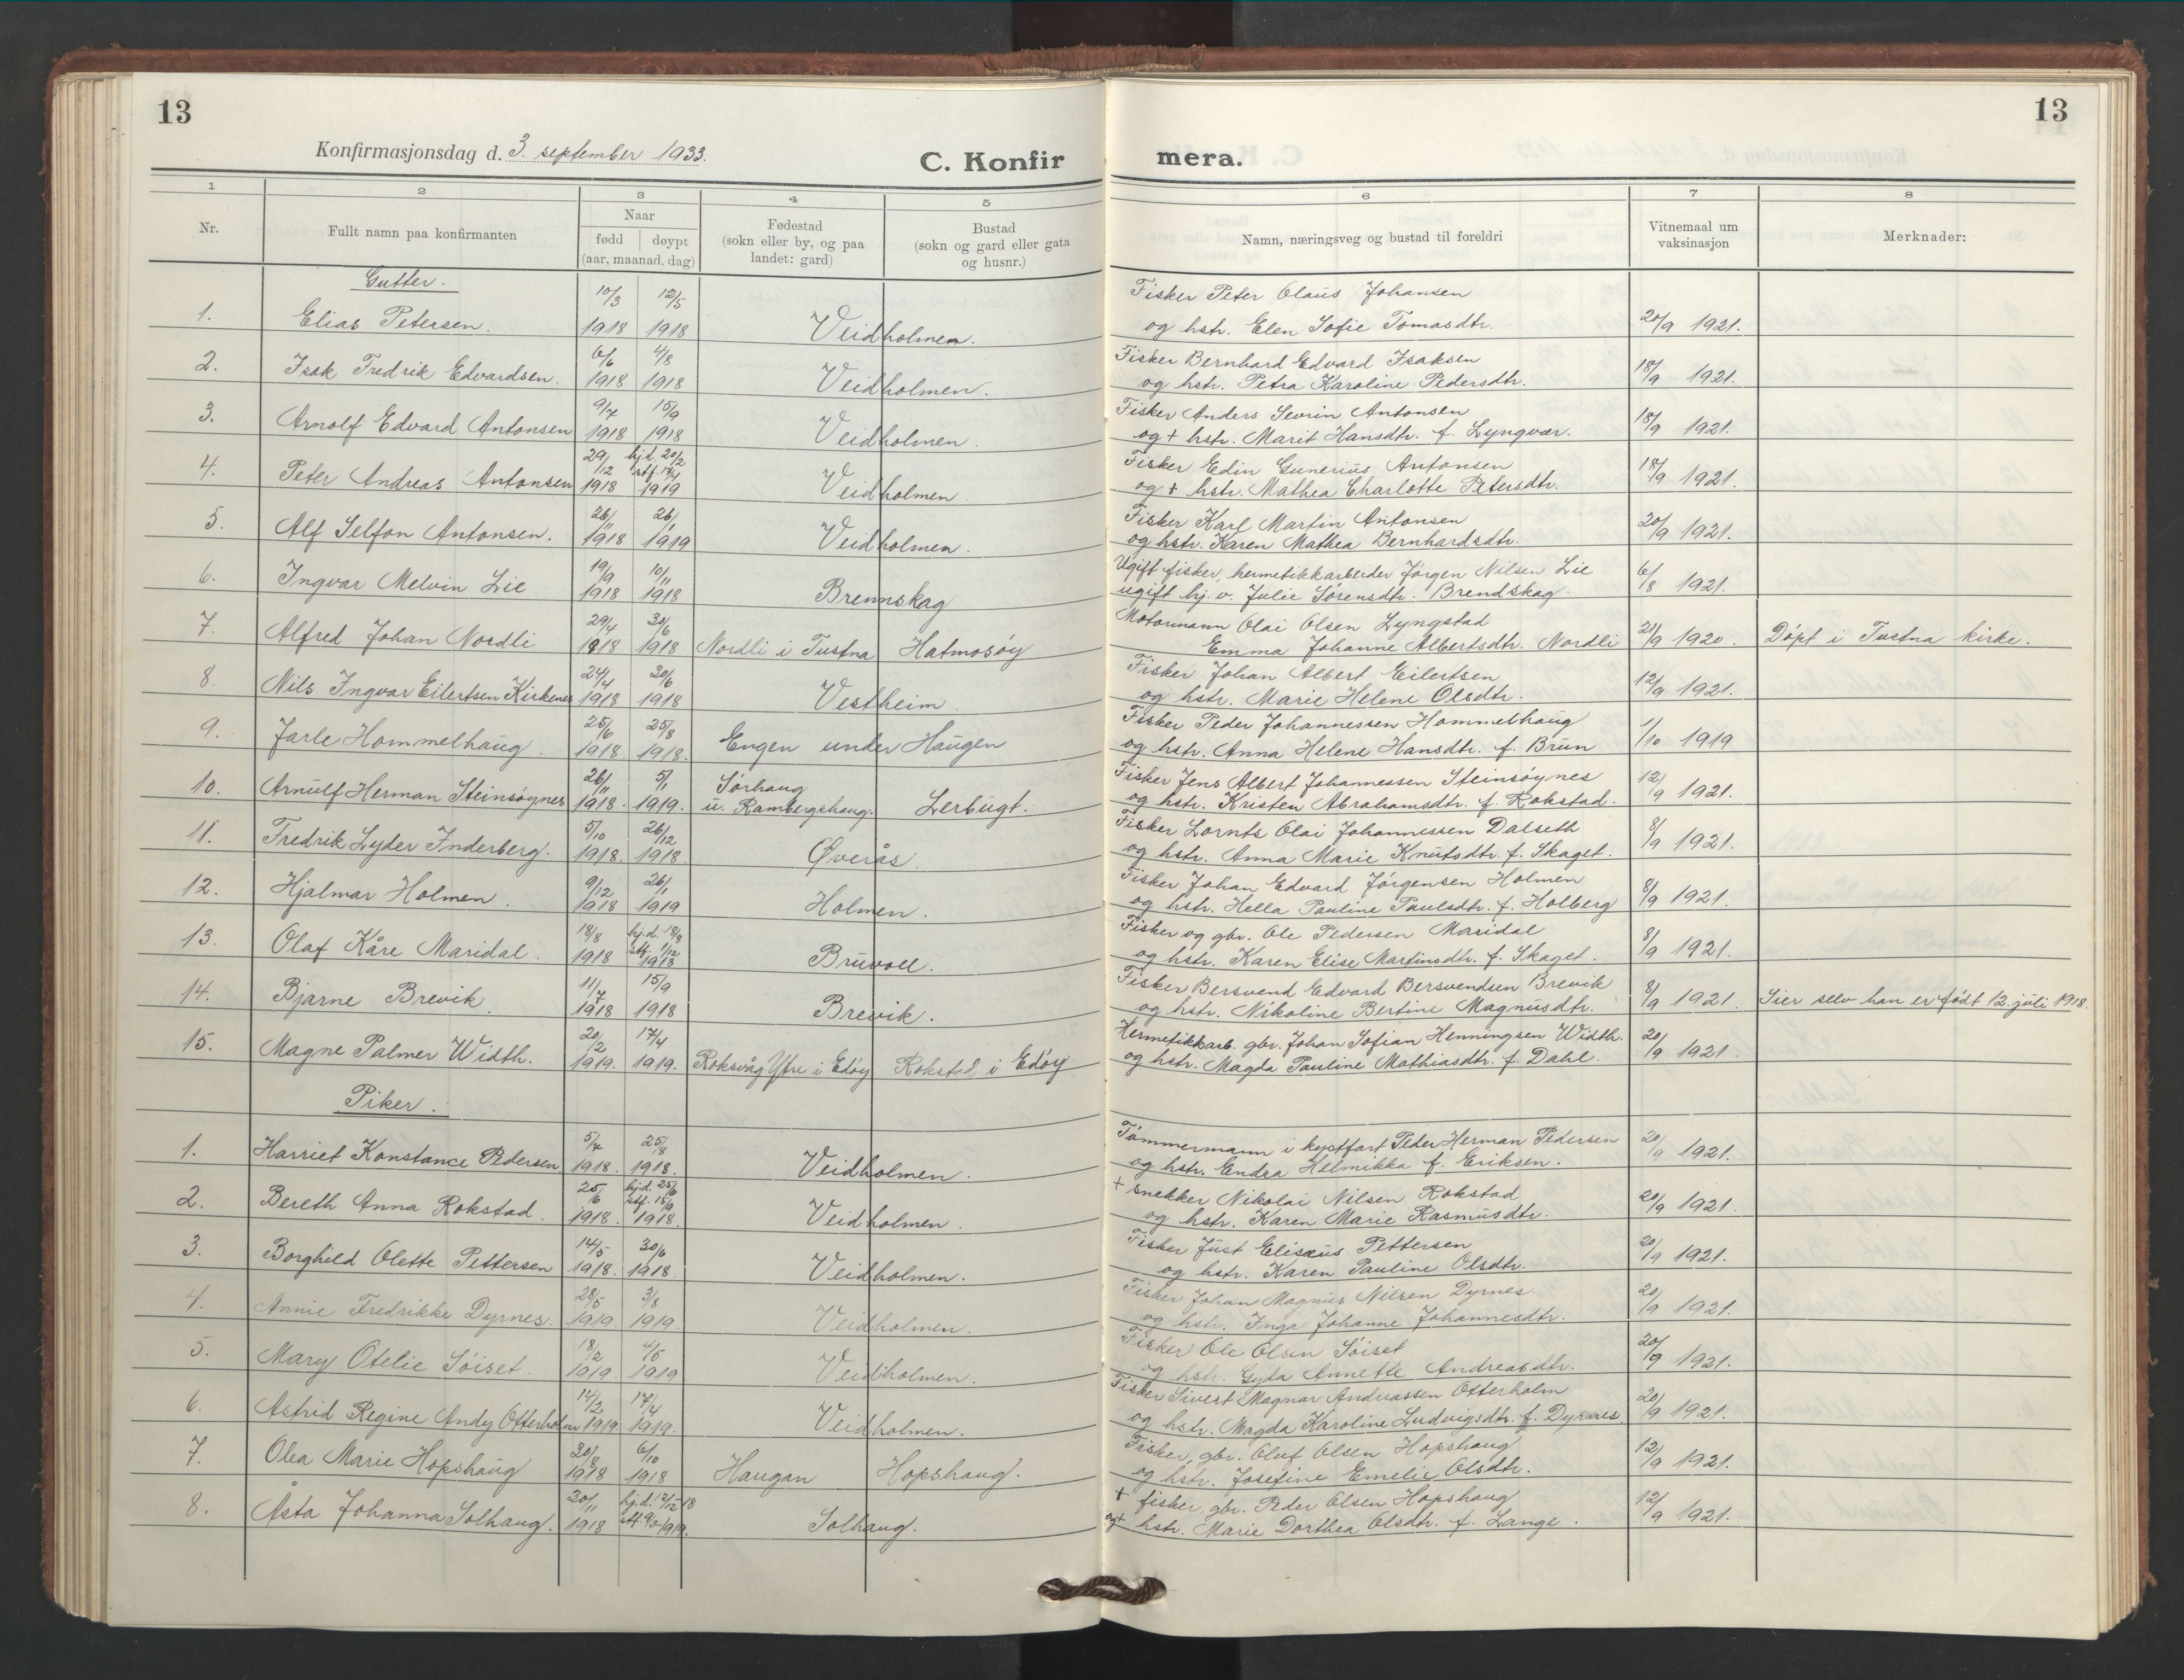 13
13
Konfirmasjonsdag d. 3. september 1933.
C. Konfir mera.
1 2 3 4 5 6 7 8
Nr.
Fullt namn paa konfirmanten
Naar
fødd døypt
(aar, maanad. dag)
Fødestad
(sokn eller by, og paa
landet: gard)
Bustad
(sokn og gard eller gata
og husnr.)
Namn, næringsveg og bustad til foreldri
Vitnemaal um
vaksinasjon
Merknader:
Gutter.
1. Elias Petersen. 10/3 1918 12/5 1918 Veidholmen. Fisker Peter Olaus Johansen
og hstr. Elen Sofie Tomasdtr. 20/9 1921.
2. Isak Fredrik Edvardsen. 6/6 1918 4/8 1918 Veidholmen. Fisker Bernhard Edvard Isaksen
og hstr. Petra Karoline Pedersdtr. 18/9 1921.
3. Arnolf Edvard Antonsen 9/7 1918 15/9 1918 Veidholmen. Fisker Anders Sevrin Antonsen
og + hstr. Marit Hansdtr. f. Lyngvær. 18/9 1921.
4. Peter Andreas Antonsen 29/12 1918 hj.d. 20/2 stf. 17/4 1919 Veidholmen. Fisker Edin Gunerius Antonsen
og + hstr. Mathea Charlotte Petersdtr. 18/9 1921.
5. Alf Selfon Antonsen. 26/11 1918 26/1 1919 Veidholmen. Fisker Karl Martin Antonsen
og hstr. Karen Mathea Bernhardsdtr. 20/9 1921.
6. Ingvar Melvin Lie 19/9 1918 10/11 1918 Brennskag Ugift fisker, hermetikkarbeider Jørgen Nilsen Lie
ugift hj. v. Julie Sørensdtr. Brendskag. 6/8 1921.
7. Alfred Johan Nordli 29/4 1918 30/6 1918 Nordli i Tustna Hatmosøy Motormann Olai Olsen Lyngstad
Emma Johanne Albertsdtr. Nordli 21/9 1920. Döpt i Tustna kirke.
8. Nils Ingvar Eilertsen Kirkenes 24/4 1918 30/6 1918 Vestheim. Fisker Johan Albert Eilertsen
og hstr. Marie Helene Olsdtr. 12/9 1921.
9. Jarle Hommelhaug. 25/6 1918 25/8 1918. Engen under Haugen Fisker Peder Johannessen Hommelhaug
og hstr. Anna Helene Hansdtr. f. Brun 1/10 1919
10. Arnulf Herman Steinsøynes 26/11 1918. 5/1 1919. Sørhaug
u. Rambergshaug. Lerbugt. Fisker Jens Albert Johannessen Steinsøynes
og hstr. Kristen Abrahamsdtr. f. Rokstad. 12/9 1921.
11. Fredrik Lyder Inderberg. 5/10 1918. 26/12 1918. Øverås. Fisker Lornts Olai Johannessen Dalseth
og hstr. Anna Marie Knutsdtr. f. Skaget. 8/9 1921.
12. Hjalmar Holmen. 9/12 1918 26/1 1919 Holmen. Fisker Johan Edvard Jørgensen Holmen
og hstr. Hella Pauline Paulsdtr. f. Holberg 8/9 1921.
13. Olaf Kåre Maridal. 18/8 1918 hj.d. 18/8 stf. 1/12 1918 Bruvoll. Fisker og gbr. Ole Pedersen Maridal
og hstr. Karen Elise Martinsdtr. f. Skaget. 8/9 1921.
14. Bjarne Brevik. 11/7 1918 15/9 1918 Brevik. Fisker Bersvend Edvard Bersvendsen Brevik
og hstr. Nikoline Bertine Magnusdtr. 8/9 1921. Sier selv han er født 12. juli 1918.
15. Magne Palmer Width. 20/2 1919. 17/4 1919. Roksvåg Ytre i Edøy Rokstad i Edøy Hermetikkarb. gbr. Johan Sofian Henningsen Widthr.
og hstr. Magda Pauline Mathiasdtr. f. Dahl. 20/9 1921.
Piker.
1. Harriet Konstance Pedersen 5/7 1918. 25/8 1918. Veidholmen. Tømmermann i kystfart Peder Herman Pedersen
og hstr. Endra Helmikka f. Eriksen. 20/9 1921.
2. Bereth Anna Rokstad. 25/6 1918. hj.d. 25/6 stf. 15/9 1918. Veidholmen. + snekker Nikolai Nilsen Rokstad
og hstr. Karen Marie Rasmusdtr. 20/9 1921.
3. Borghild Olette Pettersen 14/5 1918. 30/6 1918. Veidholmen. Fisker Just Elisæus Pettersen
og hstr. Karen Pauline Olsdtr. 20/9 1921.
4. Annie Fredrikke Dyrnes. 28/5 1919. 3/8 1919 Veidholmen. Fisker Johan Magnus Nilsen Dyrnes.
og hstr. Inga Johanne Johannesdtr. 20/9 1921.
5. Mary Otelie Söiset. 18/2 1919. 4/5 1919 Veidholmen. Fisker Ole Olsen Söiset
og hstr. Gyda Annette Andreasdtr. 20/9 1921.
6. Astrid Regine Andy Otterholm 14/2 1919. 17/4 1919. Veidholmen. Fisker Sivert Magnar Andreassen Otterholm
og hstr. Magda Karoline Ludvigsdtr. f. Dyrnes 20/9 1921.
7. Olea Marie Hopshaug 30/8 1918 6/10 1918 Haugan Hopshaug. Fisker, gbr. Oluf Olsen Hopshaug
og hstr. Josefine Emelie Olsdtr. 12/9 1921.
8. Åsta Johanna Solhaug. 30/11 1918 hj.d. 12/12 18 stf. 9/2 1919. Solhaug. + fisker, gbr. Peder Olsen Hopshaug
og + hstr. Marie Dorthea Olsdtr. f. Lange. 12/9 1921.